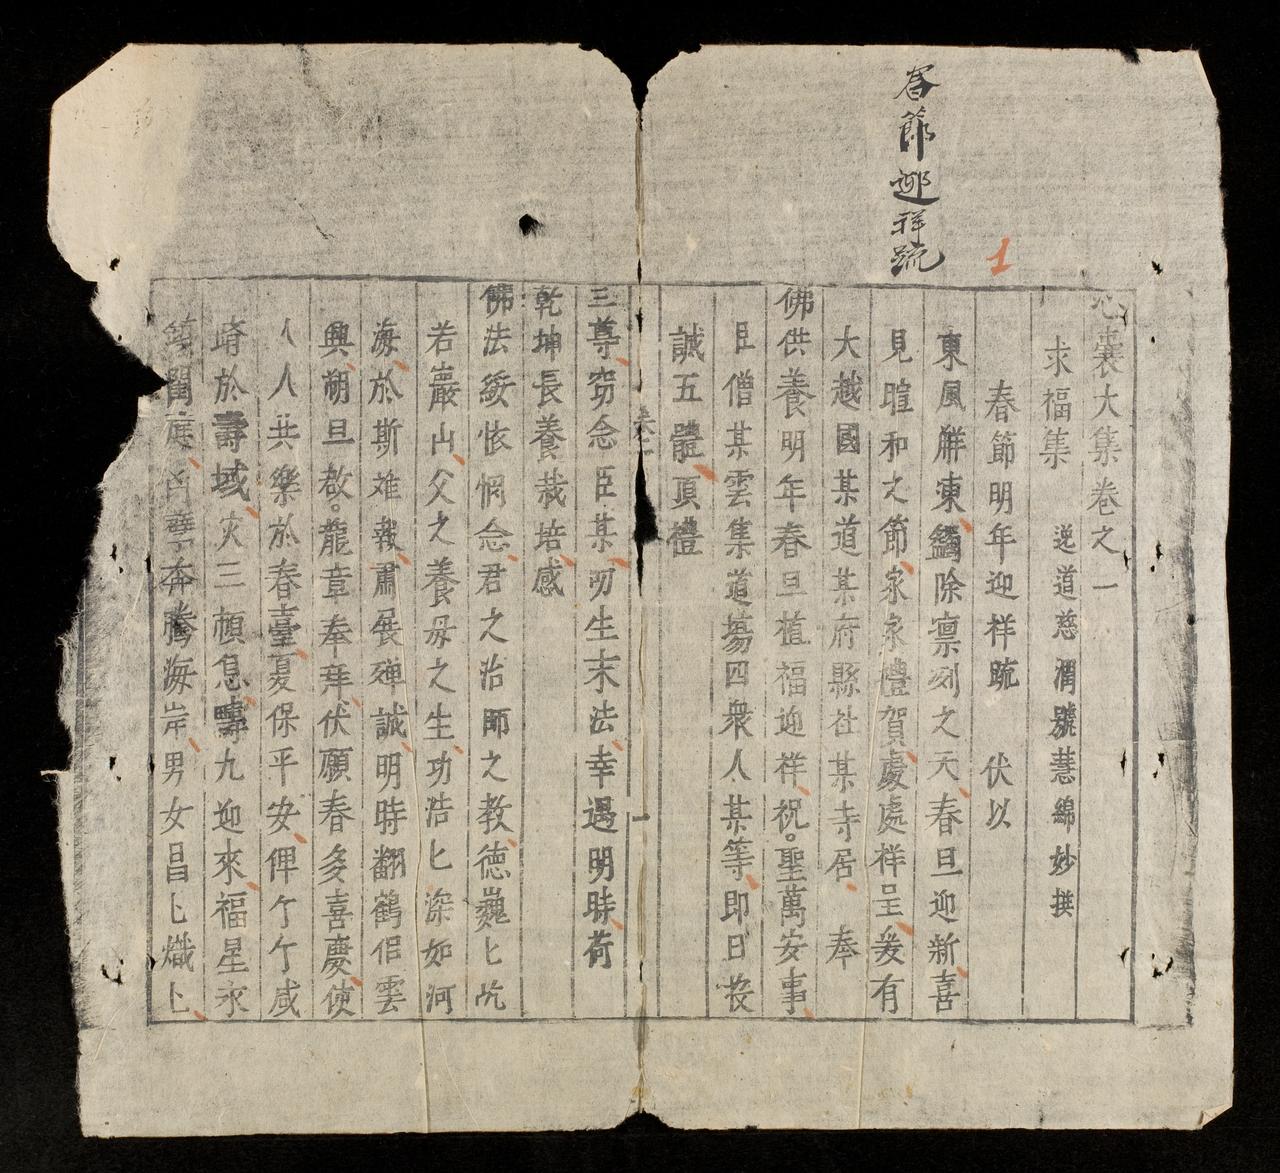 春節迎祥疏
1
心囊大集卷之一
求福集 逆道慈潤號慧綿妙撰
春節明年迎祥疏 伏以
東風解凍蠲除凛冽之天春旦迎新喜
見暄和之節家家禮賀處處祥呈爰有
大越國某道某府縣社某寺居 奉
佛供養明年春旦植福迎祥祝聖萬安事
臣僧某雲集道場四衆人某等即日投
誠五體頂禮
卷一
一
三尊窃念臣某叨生末法幸遇明時荷
乾坤長養栽培感
佛法綏依惘念君之治師之教德巍匕屹
若巖山父之養母之生功浩匕深如河
海於斯难報肅展殫誠明時翻鶴侶雲
興朔旦啟龍章奉拜伏願春多喜慶使
人人共樂於春臺夏保平安俾个个咸
躋於壽域灾三頓息疇九迎來福星永
鎮閣庭 孽奔騰海岸男女昌匕熾匕